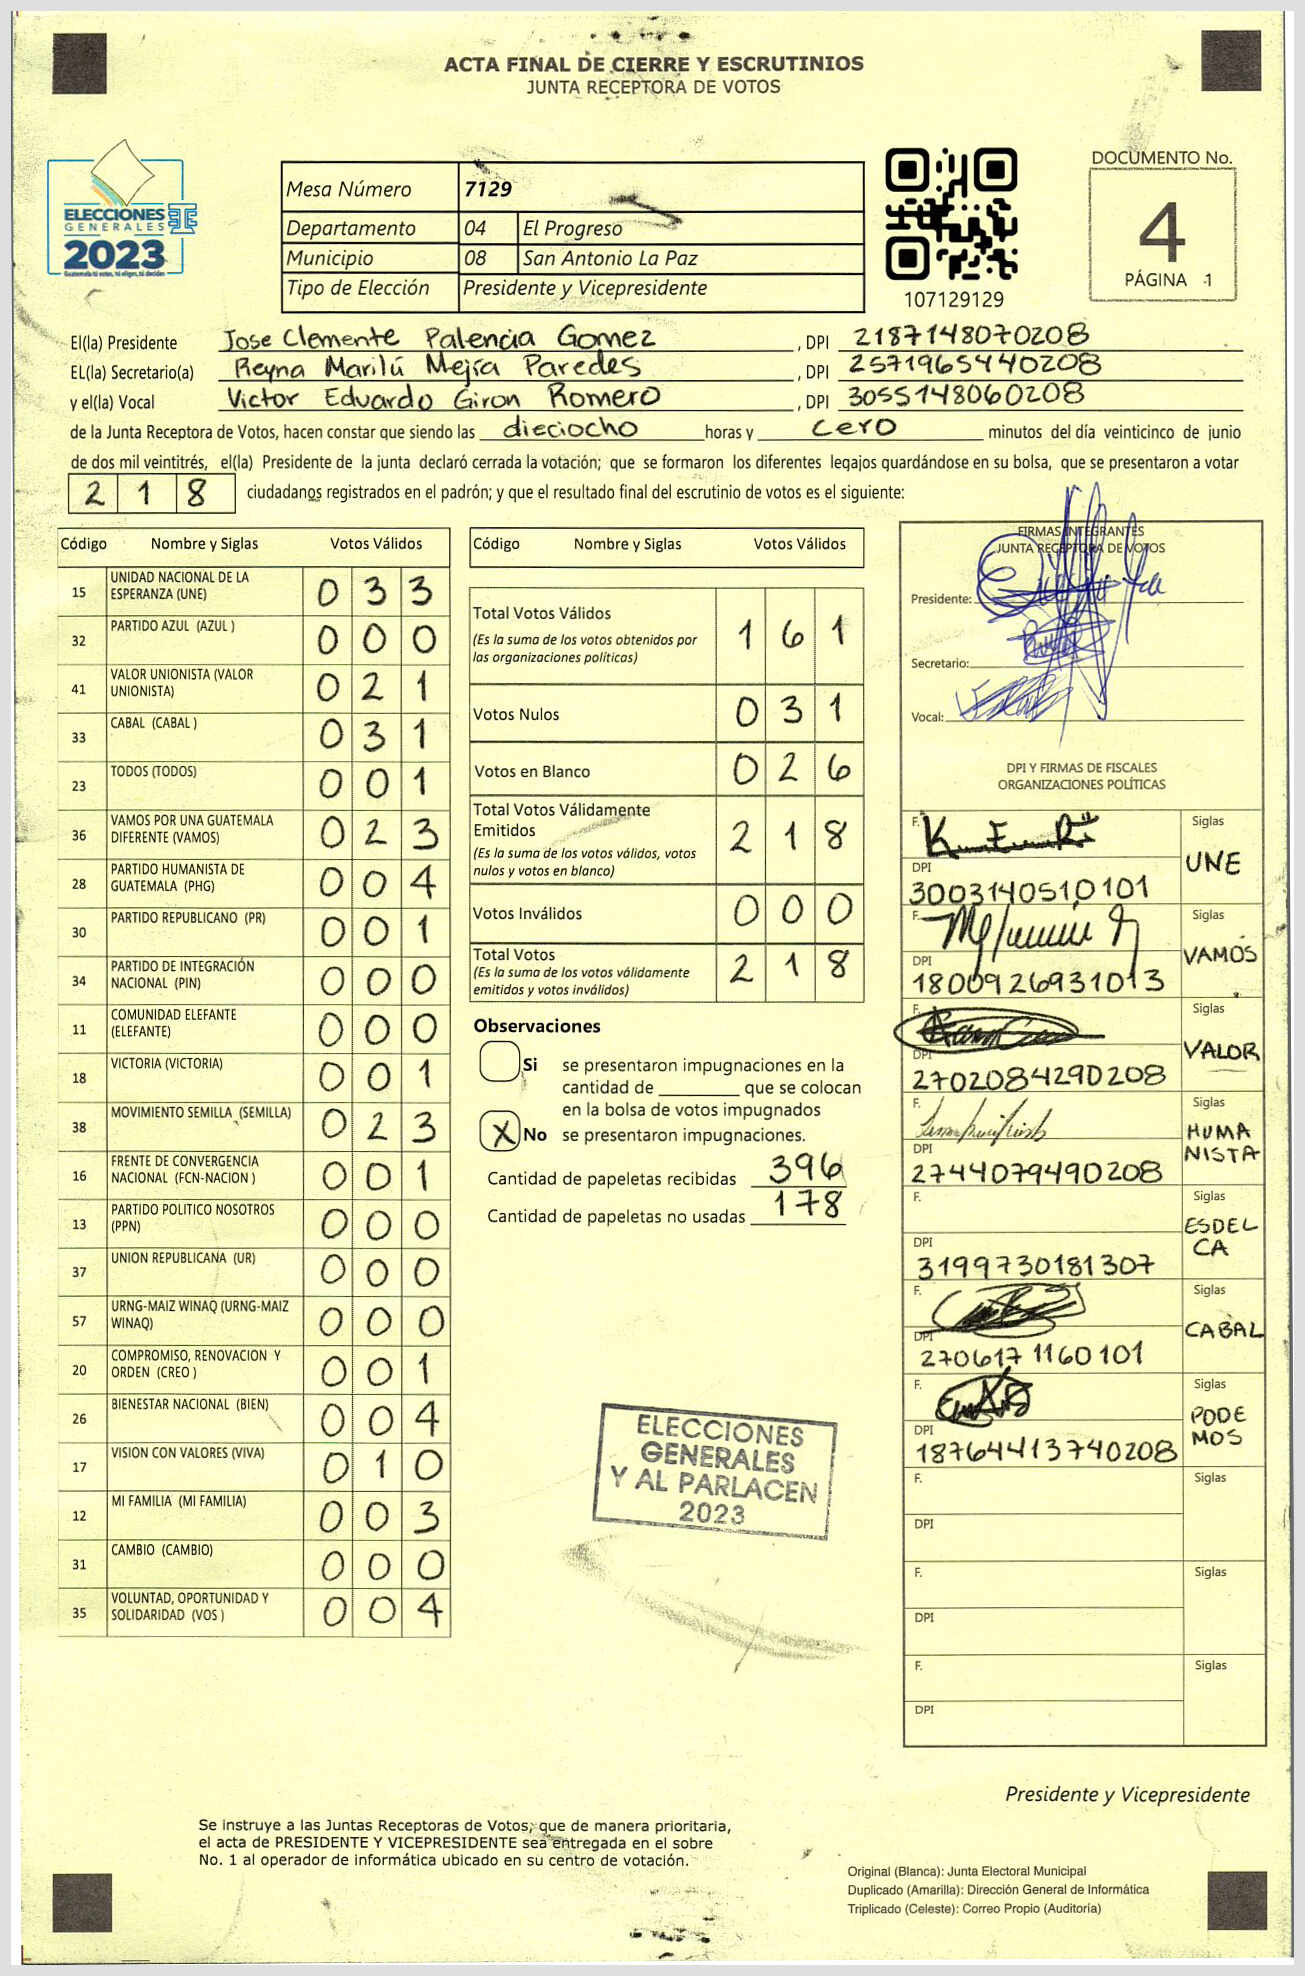 ACTA FINAL DE CIERRE Y ESCRUTINIOS
JUNTA RECEPTORA DE VOTOS
ELECCIONES
GENERALES
2023
Guatemala tú votas, tú eliges, tú decides
Mesa Número 7129
Departamento 04 El Progreso
Municipio 08 San Antonio La Paz
Tipo de Elección Presidente y Vicepresidente
107129129
DOCUMENTO No.
4
PÁGINA 1
El(la) Presidente Jose Clemente Palencia Gomez, DPI 2187148070208
EL(la) Secretario(a) Reyna Marilú Mejía Paredes, DPI 2571965440208
y el(la) Vocal Victor Eduardo Giron Romero, DPI 3055148060208
de la Junta Receptora de Votos, hacen constar que siendo las dieciocho horas y cero minutos del día veinticinco de junio
de dos mil veintitrés, el(la) Presidente de la junta declaró cerrada la votación; que se formaron los diferentes legajos guardándose en su bolsa, que se presentaron a votar
218 ciudadanos registrados en el padrón; y que el resultado final del escrutinio de votos es el siguiente:
Código Nombre y Siglas Votos Válidos
15 UNIDAD NACIONAL DE LA ESPERANZA (UNE) 033
32 PARTIDO AZUL (AZUL ) 000
41 VALOR UNIONISTA (VALOR UNIONISTA) 021
33 CABAL (CABAL ) 031
23 TODOS (TODOS) 001
36 VAMOS POR UNA GUATEMALA DIFERENTE (VAMOS) 023
28 PARTIDO HUMANISTA DE GUATEMALA (PHG) 004
30 PARTIDO REPUBLICANO (PR) 001
34 PARTIDO DE INTEGRACIÓN NACIONAL (PIN) 000
11 COMUNIDAD ELEFANTE (ELEFANTE) 000
18 VICTORIA (VICTORIA) 001
38 MOVIMIENTO SEMILLA (SEMILLA) 023
16 FRENTE DE CONVERGENCIA NACIONAL (FCN-NACION ) 001
13 PARTIDO POLITICO NOSOTROS (PPN) 000
37 UNION REPUBLICANA (UR) 000
57 URNG-MAIZ WINAQ (URNG-MAIZ WINAQ) 000
20 COMPROMISO, RENOVACION Y ORDEN (CREO ) 001
26 BIENESTAR NACIONAL (BIEN) 004
17 VISION CON VALORES (VIVA) 010
12 MI FAMILIA (MI FAMILIA) 003
31 CAMBIO (CAMBIO) 000
35 VOLUNTAD, OPORTUNIDAD Y SOLIDARIDAD (VOS ) 004
Código Nombre y Siglas Votos Válidos
Total Votos Válidos 161
(Es la suma de los votos obtenidos por
las organizaciones políticas)
Votos Nulos 031
Votos en Blanco 026
Total Votos Válidamente
Emitidos 218
(Es la suma de los votos válidos, votos
nulos y votos en blanco)
Votos Inválidos 000
Total Votos 218
(Es la suma de los votos válidamente
emitidos y votos inválidos)
Observaciones
Si se presentaron impugnaciones en la
cantidad de ________ que se colocan
en la bolsa de votos impugnados
X No se presentaron impugnaciones.
Cantidad de papeletas recibidas 396
Cantidad de papeletas no usadas 178
ELECCIONES
GENERALES
Y AL PARLACEN
2023
FIRMAS INTEGRANTES
JUNTA RECEPTORA DE VOTOS
Presidente:
Secretario:
Vocal:
DPI Y FIRMAS DE FISCALES
ORGANIZACIONES POLÍTICAS
F. Siglas
DPI UNE
3003140510101
F. Siglas
DPI VAMOS
1800926931013
F. Siglas
DPI VALOR
2702084290208
F. Siglas
DPI HUMANISTA
2744079490208
F. Siglas
DPI ESDELCA
3199730181307
F. Siglas
DPI CABAL
2706171160101
F. Siglas
DPI PODEMOS
18764413740208
F. Siglas
DPI
F. Siglas
DPI
F. Siglas
DPI
Presidente y Vicepresidente
Se instruye a las Juntas Receptoras de Votos, que de manera prioritaria,
el acta de PRESIDENTE Y VICEPRESIDENTE sea entregada en el sobre
No. 1 al operador de informática ubicado en su centro de votación.
Original (Blanca): Junta Electoral Municipal
Duplicado (Amarilla): Dirección General de Informática
Triplicado (Celeste): Correo Propio (Auditoría)